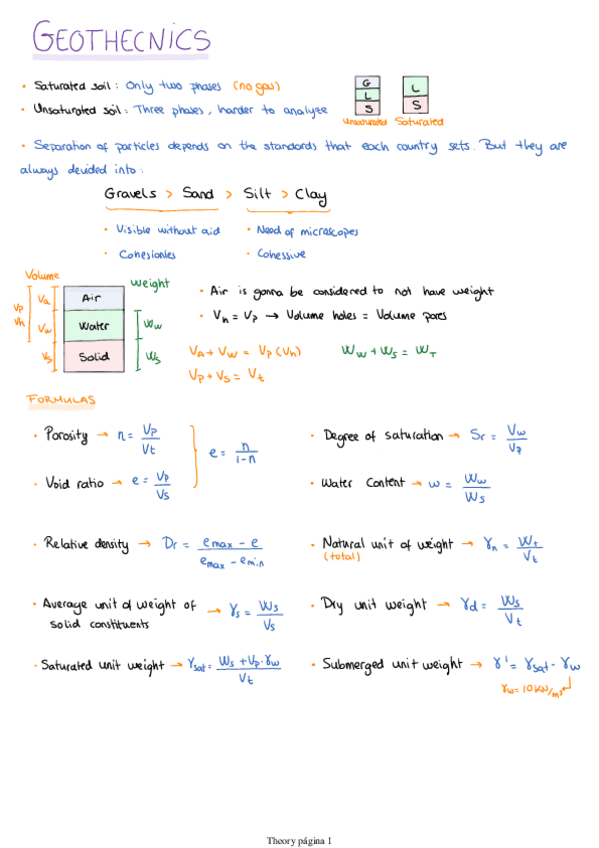 GEOTHECNICS
• Saturated soil: Only two phases (no gas)
• Unsaturated soil: Three phases, harder to analyze
G
L
S
Unsaturated
L
S
Saturated
• Separation of particles depends on the standards that each country sets. But they are
always devided into:
Gravels > Sand > Silt > Clay
• Visible without aid
• Cohesionles
• Need of microscopes
• Cohessive
Volume
Weight
Vp
Vh
Va
Vw
Vs
Air
Water
Solid
Ww
Ws
• Air is gonna be considered to not have weight
• Vh = Vp → Volume holes = Volume pores
VA + Vw = Vp (Vh)
Ww + Ws = WT
Vp + Vs = Vt
FORMULAS
• Porosity → n = Vp/Vt
• Void ratio → e = Vp/Vs
e = n/1-n
• Degree of saturation → Sr = Vw/Vp
• Water Content → w = Ww/Ws
• Relative density → Dr = emax - e/emax - emin
• Natural unit of weight → γn = Wt/Vt
(total)
• Average unit of weight of
solid constituents → γs = Ws/Vs
• Dry unit weight → γd = Ws/Vt
• Saturated unit weight → γsat = Ws + Vp·γw/Vt
• Submerged unit weight → γ' = γsat - γw
γw = 10 KN/m³
Theory página 1